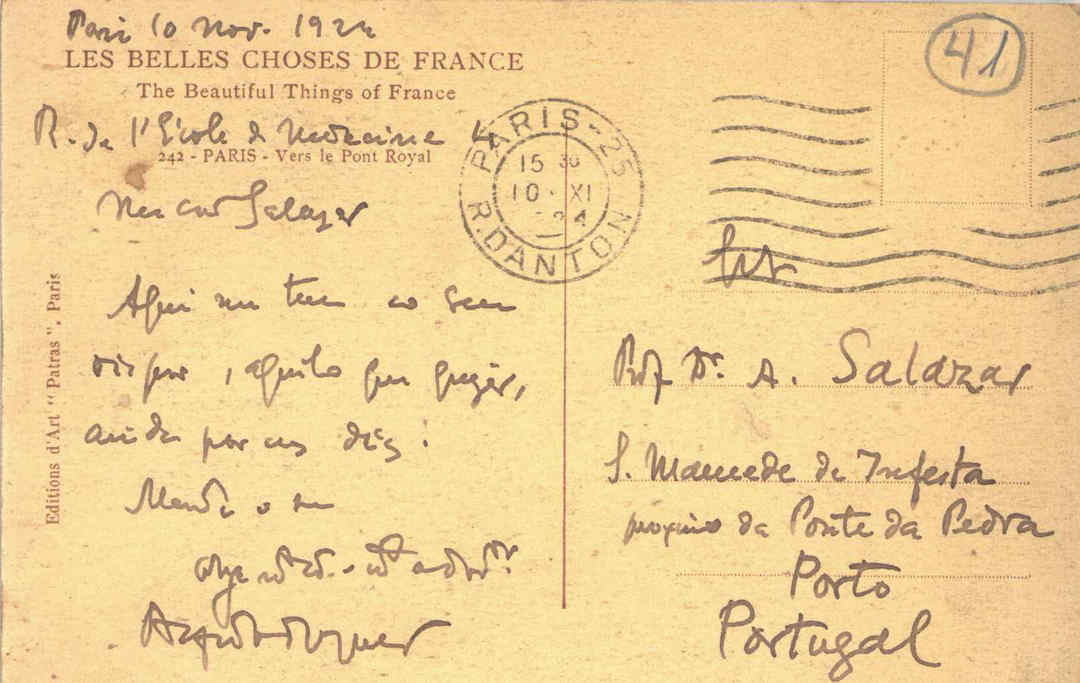 Paris 10 Nov. 1924
LES BELLES CHOSES DE FRANCE
The Beautiful Things of France
R. de l'Ecole de Médecine 4
242 - PARIS - Vers le Pont Royal
Meu caro Salazar
Aqui me tem ao seu
dispor, aquilo que quizer,
ainda por uns dias.
Mande o seu
Editions d'Art "Patras", Paris
PARIS - 25
15 30
10 - XI
24
R. DANTON
41
Prof. Dr. A. Salazar
S. Mamede de Infesta
proximo da Ponte da Pedra
Porto
Portugal